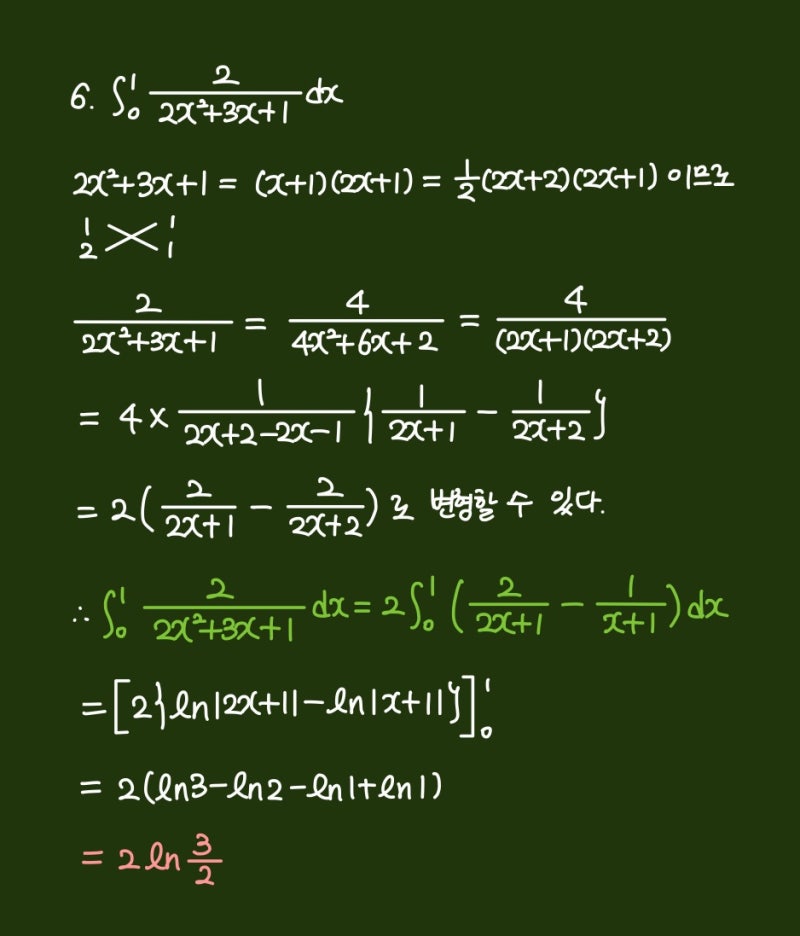 6. ∫₀¹ 2/(2x²+3x+1) dx
2x²+3x+1 = (x+1)(2x+1) = 1/2(2x+2)(2x+1) 이므로
1 1
2 1
2/(2x²+3x+1) = 4/(4x²+6x+2) = 4/((2x+1)(2x+2))
= 4 × 1/(2x+2-2x-1) {1/(2x+1) - 1/(2x+2)}
= 2(2/(2x+1) - 2/(2x+2))로 변형할 수 있다.
∴ ∫₀¹ 2/(2x²+3x+1) dx = 2∫₀¹ (2/(2x+1) - 1/(x+1)) dx
= [2{ln|2x+1| - ln|x+1|}]₀¹
= 2(ln3-ln2-ln1+ln1)
= 2 ln 3/2